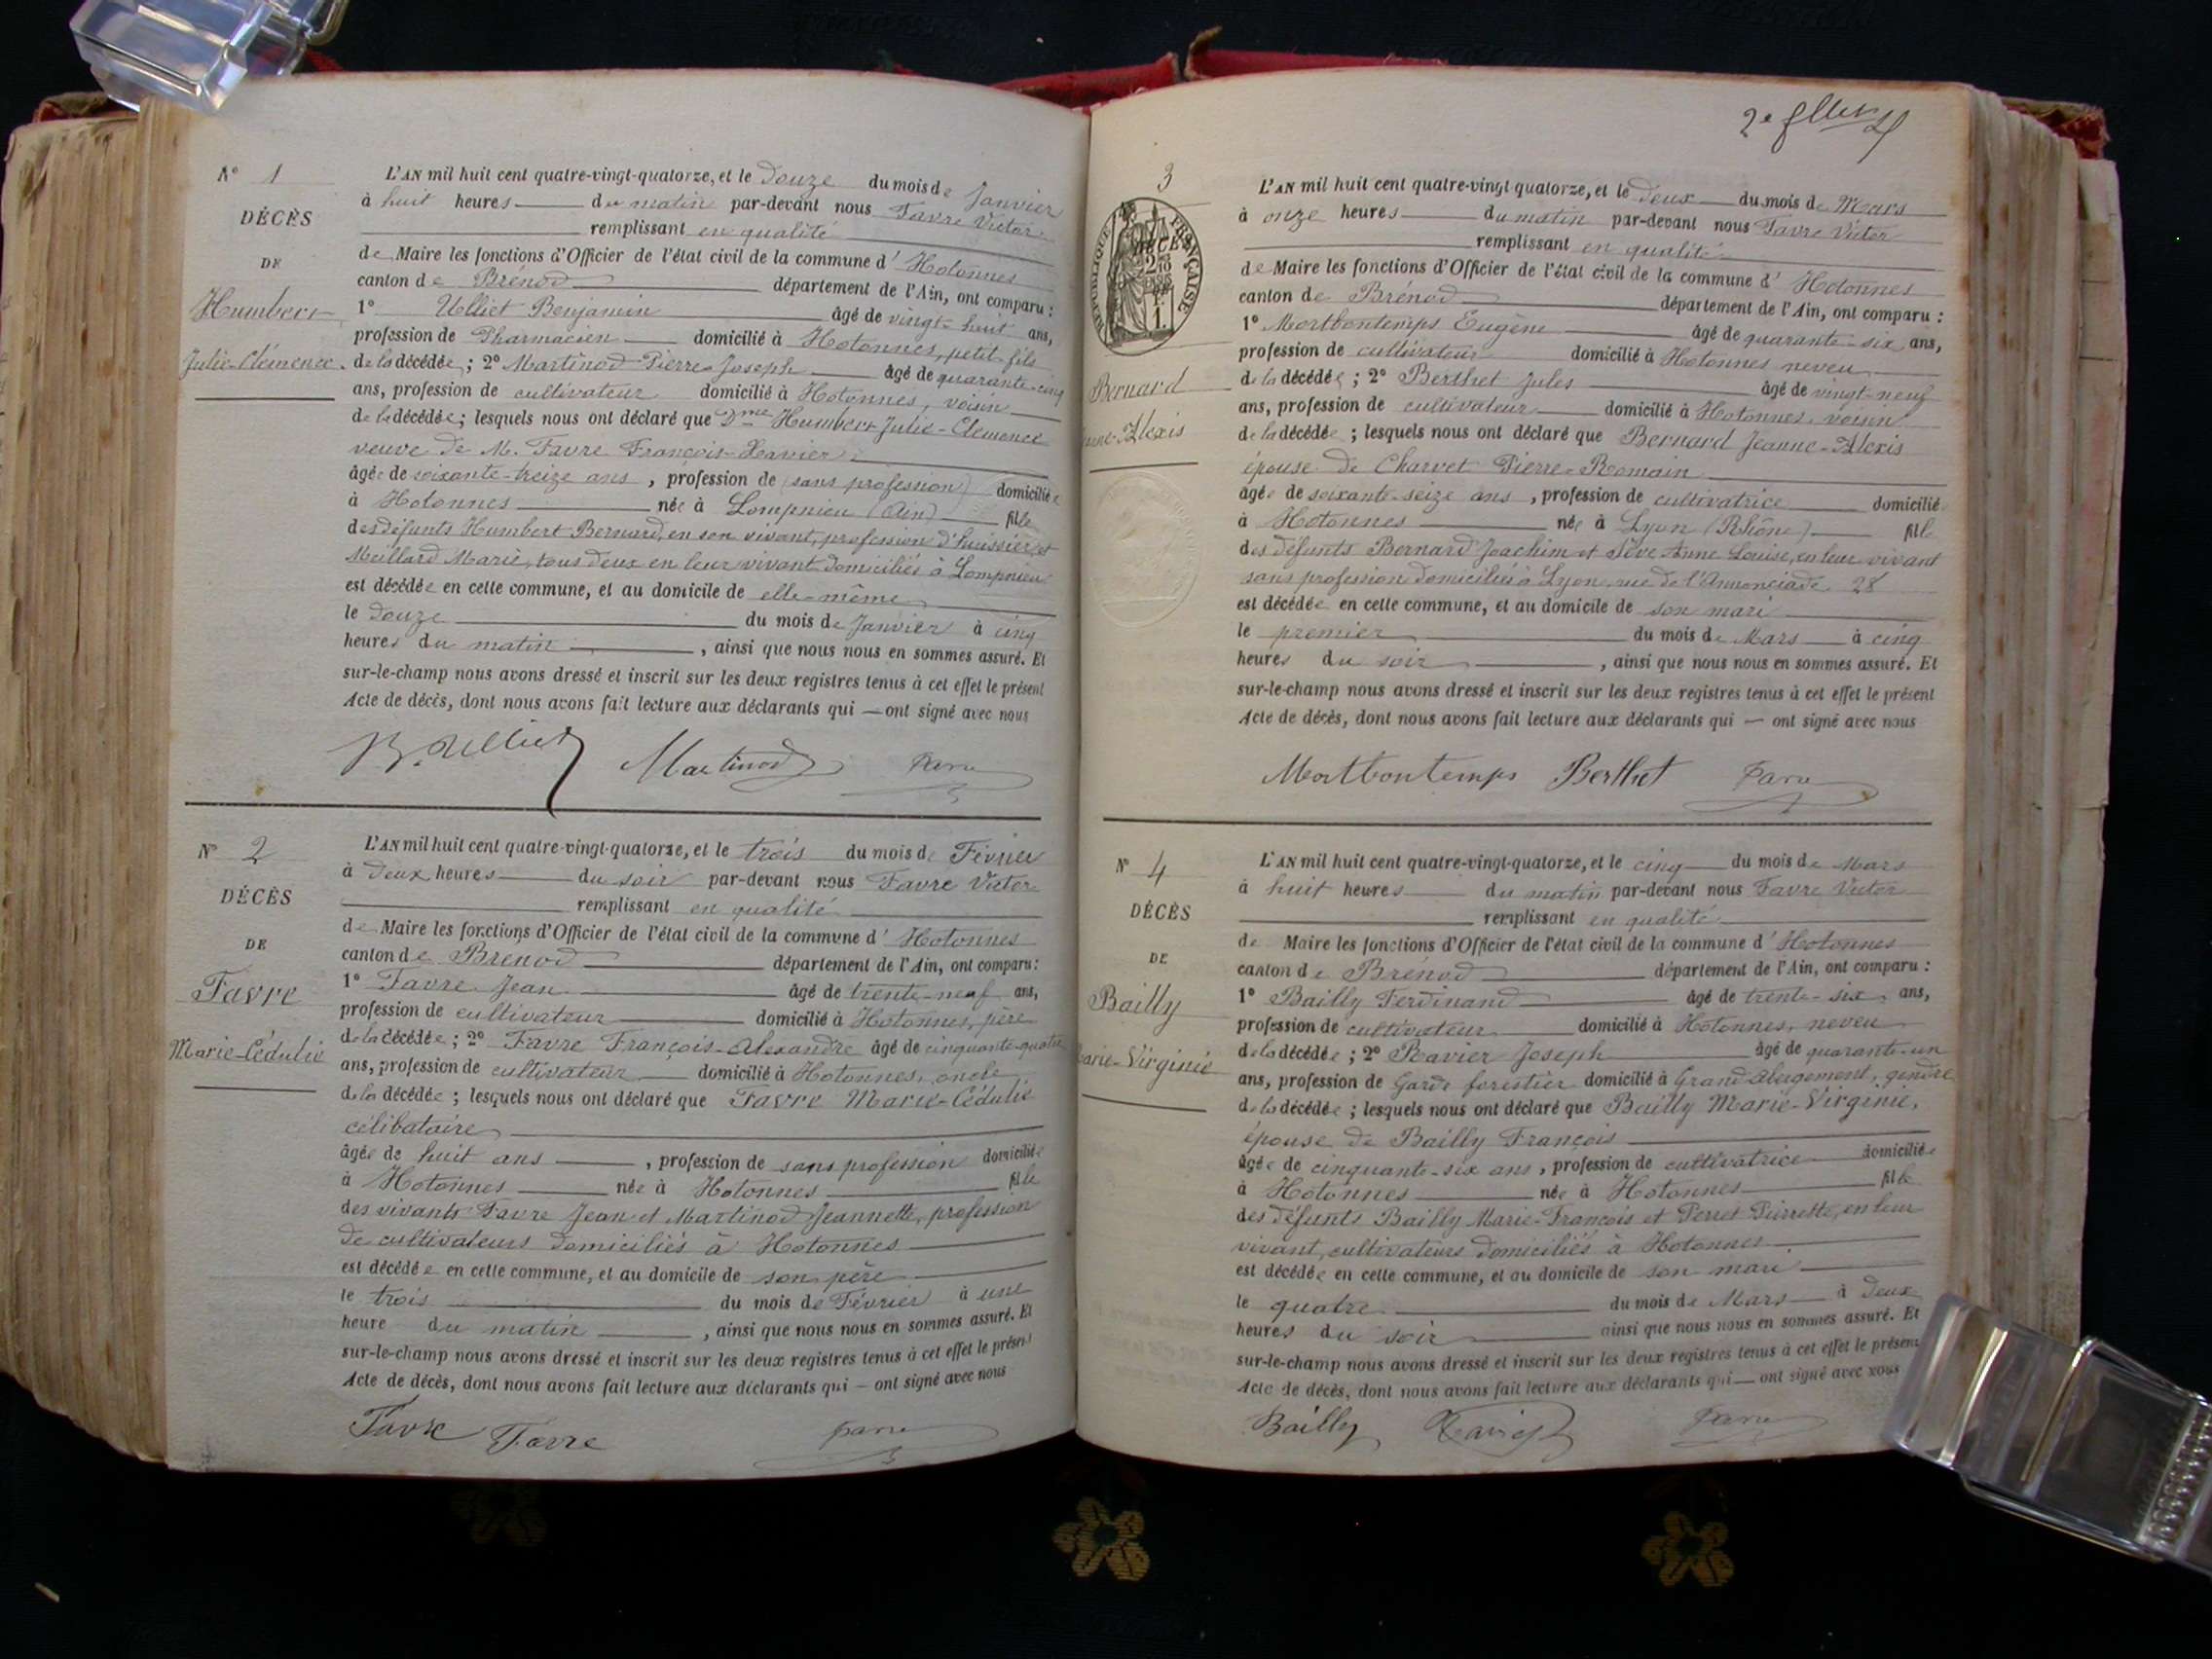 N° 1
DÉCÈS
DE
Humbert
Julie-Clémence.
L'AN mil huit cent quatre-vingt-quatorze, et le douze du mois de Janvier
à huit heures du matin par-devant nous Favre Victor
remplissant en qualité
de Maire les fonctions d'Officier de l'état civil de la commune d' Hotonnes
canton de Brénod département de l'Ain, ont comparu :
1° Ulliet Benjamin âgé de vingt-huit ans,
profession de Pharmacien domicilié à Hotonnes, petit-fils
de la décédée ; 2° Martinod Pierre-Joseph âgé de quarante-cinq
ans, profession de cultivateur domicilié à Hotonnes, voisin
de la décédée ; lesquels nous ont déclaré que Dme Humbert Julie-Clémence
veuve de M. Favre François-Xavier
âgée de soixante-treize ans, profession de (sans profession) domiciliée
à Hotonnes née à Lompnieu (Ain) fille
des défunts Humbert Bernard, en son vivant, profession d'huissier et
Meillard Marie, tous deux en leur vivant domiciliés à Lompnieu
est décédée en cette commune, et au domicile de elle-même
le douze du mois de Janvier à cinq
heures du matin, ainsi que nous nous en sommes assuré. Et
sur-le-champ nous avons dressé et inscrit sur les deux registres tenus à cet effet le présent
Acte de décès, dont nous avons fait lecture aux déclarants qui — ont signé avec nous
B. Ulliet Martinod Favre
N° 2
DÉCÈS
DE
Favre
Marie-Cédulie
L'AN mil huit cent quatre-vingt-quatorze, et le trois du mois de Février
à deux heures du soir par-devant nous Favre Victor
remplissant en qualité
de Maire les fonctions d'Officier de l'état civil de la commune d' Hotonnes
canton de Brenod département de l'Ain, ont comparu :
1° Favre Jean âgé de trente-neuf ans,
profession de cultivateur domicilié à Hotonnes, père
de la décédée ; 2° Favre François-Alexandre âgé de cinquante-quatre
ans, profession de cultivateur domicilié à Hotonnes, oncle
de la décédée ; lesquels nous ont déclaré que Favre Marie-Cédulie
célibataire
âgée de huit ans, profession de sans profession domiciliée
à Hotonnes née à Hotonnes fille
des vivants Favre Jean et Martinod Jeannette, profession
de cultivateurs domiciliés à Hotonnes
est décédée en cette commune, et au domicile de son père
le trois du mois de Février à une
heure du matin, ainsi que nous nous en sommes assuré. Et
sur-le-champ nous avons dressé et inscrit sur les deux registres tenus à cet effet le présent
Acte de décès, dont nous avons fait lecture aux déclarants qui — ont signé avec nous
Favre Favre Favre
3
RÉPUBLIQUE FRANÇAISE
Bernard
Alexis
L'AN mil huit cent quatre-vingt quatorze, et le deux du mois de Mars
à onze heures du matin par-devant nous Favre Victor
remplissant en qualité
de Maire les fonctions d'Officier de l'état civil de la commune d' Hotonnes
canton de Brénod département de l'Ain, ont comparu :
1° Mortbontemps Eugène âgé de quarante-six ans,
profession de cultivateur domicilié à Hotonnes neveu
de la décédée ; 2° Berthet Jules âgé de vingt-neuf
ans, profession de cultivateur domicilié à Hotonnes, voisin
de la décédée ; lesquels nous ont déclaré que Bernard Jeanne-Alexis
épouse de Charvet Pierre-Romain
âgée de soixante-seize ans, profession de cultivatrice domicilié
à Hotonnes née à Lyon (Rhône) fille
des défunts Bernard Joachim et Sève Anne Louise, en leur vivant
sans profession domiciliés à Lyon, rue de l'Annonciade 28
est décédée en cette commune, et au domicile de son mari
le premier du mois de Mars à cinq
heures du soir, ainsi que nous nous en sommes assuré. Et
sur-le-champ nous avons dressé et inscrit sur les deux registres tenus à cet effet le présent
Acte de décès, dont nous avons fait lecture aux déclarants qui — ont signé avec nous
Mortbontemps Berthet Favre
N° 4
DÉCÈS
DE
Bailly
Marie-Virginie
L'AN mil huit cent quatre-vingt-quatorze, et le cinq du mois de Mars
à huit heures du matin par-devant nous Favre Victor
remplissant en qualité
de Maire les fonctions d'Officier de l'état civil de la commune d' Hotonnes
canton de Brénod département de l'Ain, ont comparu :
1° Bailly Ferdinand âgé de trente-six ans,
profession de cultivateur domicilié à Hotonnes, neveu
de la décédée ; 2° Ravier Joseph âgé de quarante-un
ans, profession de Garde forestier domicilié à Grand Abergement, gendre
de la décédée ; lesquels nous ont déclaré que Bailly Marie-Virginie,
épouse de Bailly François
âgée de cinquante-six ans, profession de cultivatrice domiciliée
à Hotonnes née à Hotonnes fille
des défunts Bailly Marie-François et Perret Pierrette, en leur
vivant, cultivateurs domiciliés à Hotonnes
est décédée en cette commune, et au domicile de son mari
le quatre du mois de Mars à deux
heures du soir ainsi que nous nous en sommes assuré. Et
sur-le-champ nous avons dressé et inscrit sur les deux registres tenus à cet effet le présent
Acte de décès, dont nous avons fait lecture aux déclarants qui — ont signé avec nous
Bailly Ravier Favre